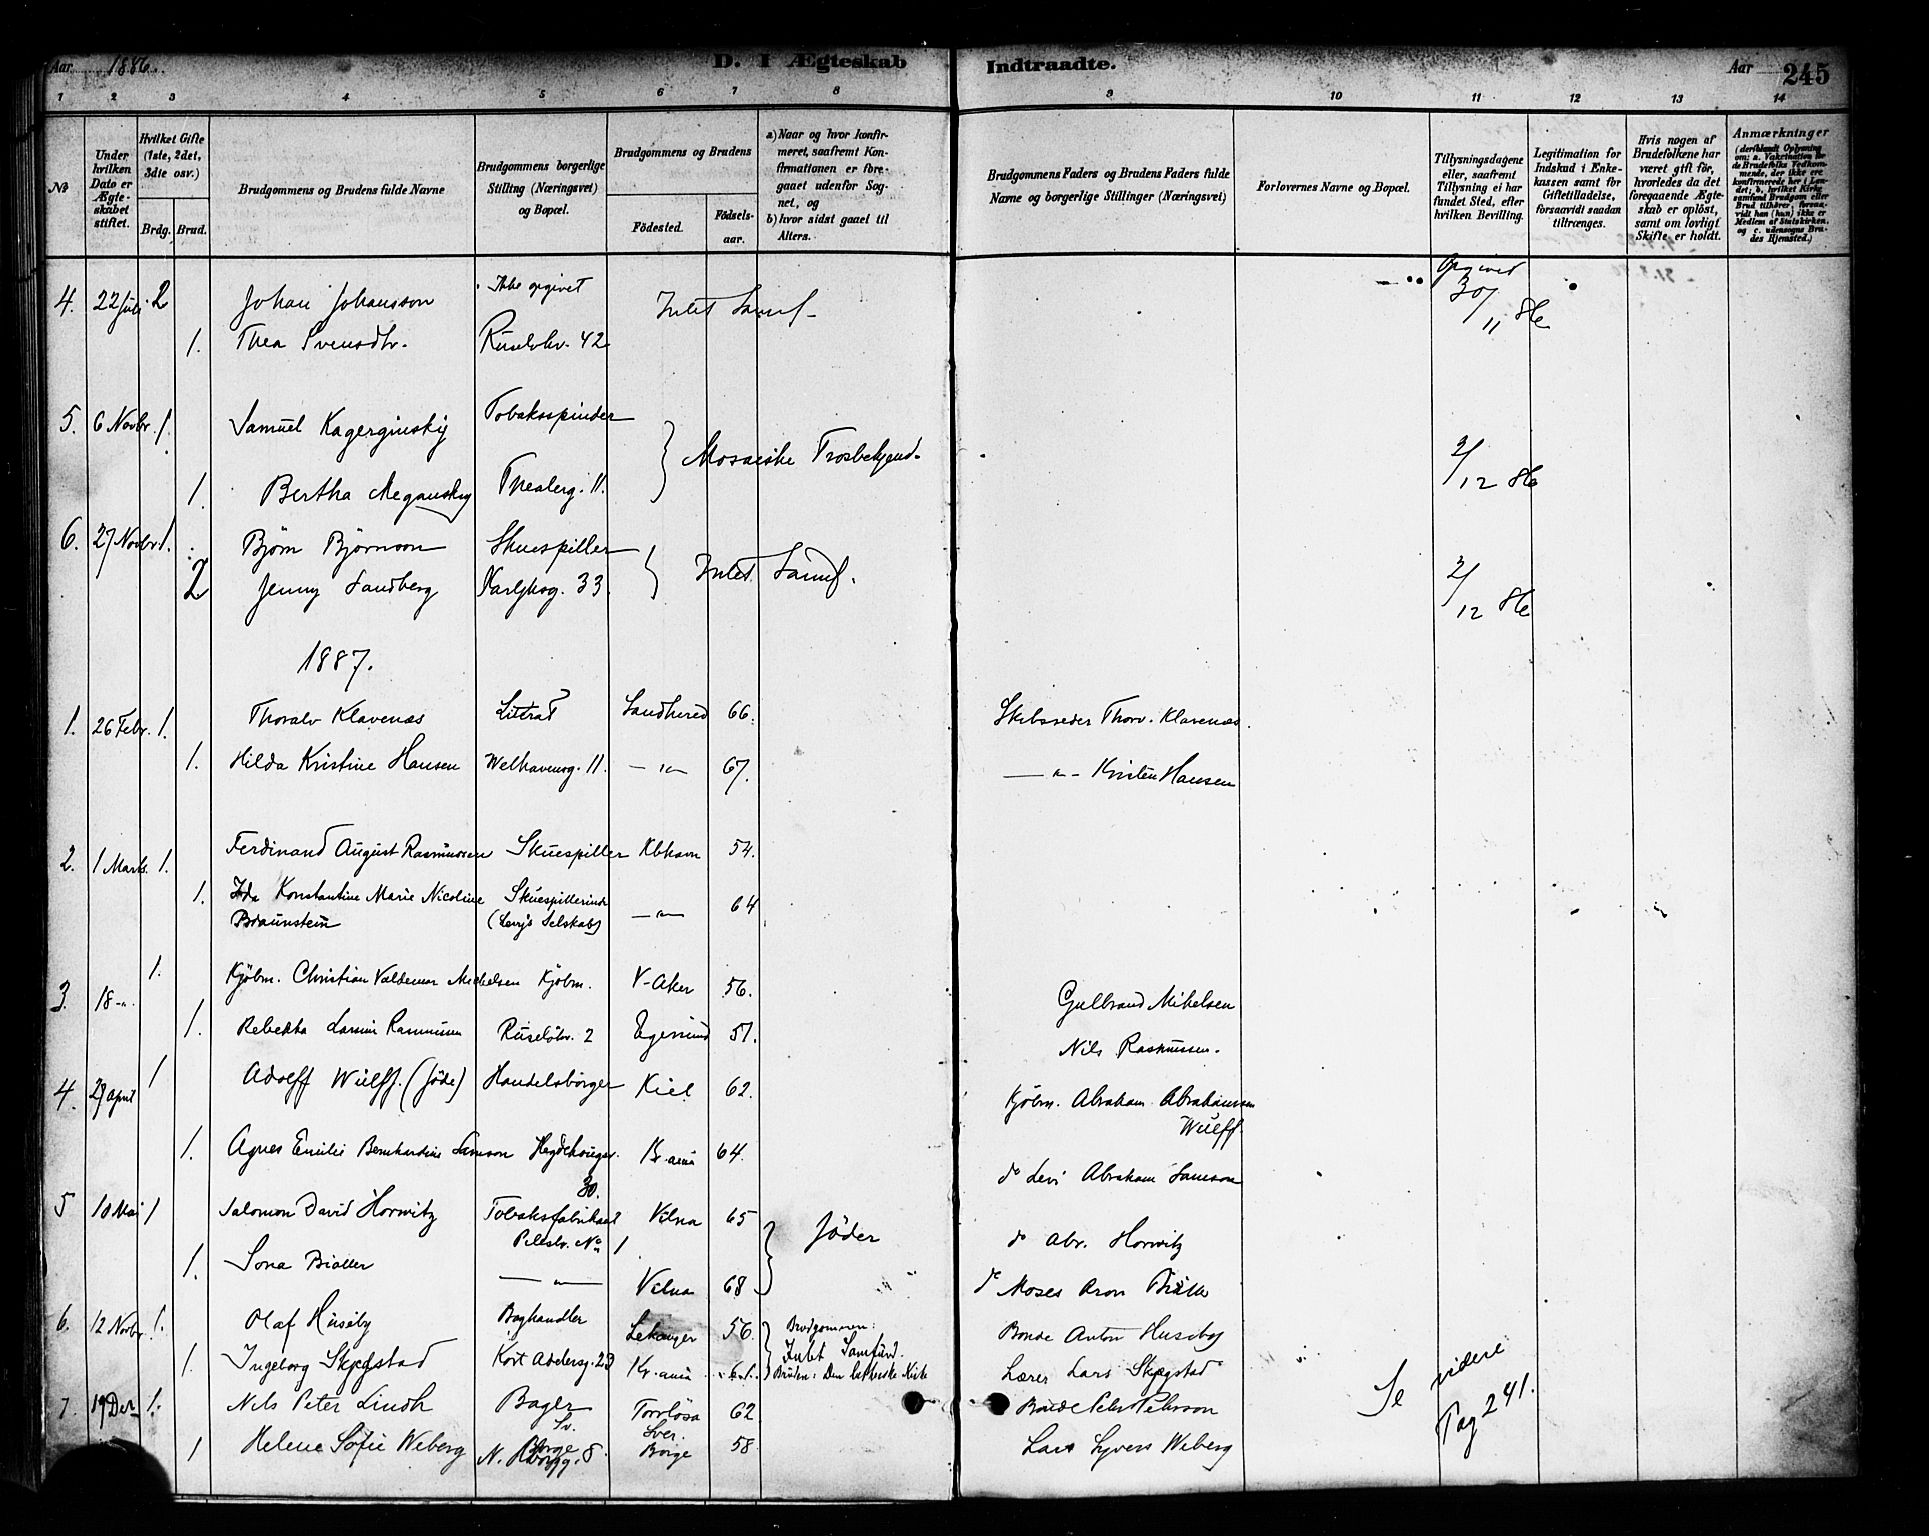 Aar 1886. D. I Ægteskab Indtraadte. Aar 245
1 2 3 4 5 6 7 8 9 10 11 12 13 14
No
Under hvilken Dato er Ægteskabet stiftet.
Hvilket Gifte (1ste, 2det, 3dte osv.)
Brdg. Brud.
Brudgommens og Brudens fulde Navne
Brudgommens borgerlige Stilling (Næringsvei) og Bopæl.
Brudgommens og Brudens
Födested. Födsels-aar.
a) Naar og hvor konfirmeret, saafremt Konfirmationen er foregaaet udenfor Sognet, og
b) hvor sidst gaaet til Alters.
Brudgommens Faders og Brudens Faders fulde Navne og borgerlige Stillinger (Næringsvei)
Forlovernes Navne og Bopæl.
Tillysningsdagene eller, saafremt Tillysning ei har fundet Sted, efter hvilken Bevilling.
Legitimation for Indskud i Enkekassen samt for Giftetilladelse, forsaavidt saadan tiltrænges.
Hvis nogen af Brudefolkene har været gift för, hvorledes da det foregaaende Ægteskab er oplöst, samt om lovligt Skifte er holdt.
Anmærkninger (deriblandt Oplysning om: a. Vaksination for de Brudefolks Vedkommende, der ikke ere konfirmerede her i Landet; b. hvilket Kirkesamfund Brudgom eller Brud tilhører, forsaavidt han (hun) ikke er Medlem af Statskirken, og c. udensogns Brudes Hjemsted.)
4. 22 Juli 2 Johan Johansson Ikke opgivet Intet Samf. Opgivet 30/11 86
1. Thea Svensdtr. Ruselökv. 42
5. 6 Novbr. 1. Samuel Kagerginskij Tobaksspinder Mosaiske Trosbekjend. 2/12 86
1. Bertha Meganskij Theaterg. 11.
6. 27 Novbr. 1. Bjørn Bjørnson Skuespiller Intet Samf. 2/12 86
2 Jenny Sandberg Karljhog. 33.
1887.
1. 26 Febr. 1. Thoralv Klavenæs Litterat Sandherred 66. Skibsreder Thorv. Klavenæs.
1. Hilda Kristine Hansen Welhavensg. 11. — " — 67. — " — Kristen Hansen
2. 1 Marts. 1. Ferdinand August Rasmussen Skuespiller Kbhavn 54.
1. Ida Konstantine Marie Nicoline Skuespillerinde — " — 64
Braunstein (Levys Selskab)
3. 18 -"- 1. Kjöbm. Christian Valdemar Michelsen Kjöbm. V-Aker 56. Gulbrand Mikelsen
1. Rebekka Rasmussen Ruselökv. 2 Egersund 51. Nils Rasmussen.
4. 29 April 1 Adolff Wulff. (Jöde) Handelsborger Kiel 62. Kjöbm. Abraham Abrahamsen
Wulff.
1. Agnes Emilie Bernhardine Samson Hegdehougsv. Kr.ania 64. do Levi Abraham Samson
30.
5 10 Mai 1 Salomon David Horwitz Tobaksfabrikant Vilna 65 Jöder do Abr. Horwitz
Pilestr. No 1
1. Sona Bialler — " — Vilna 68 do Moses Aron
6. 12 Novbr. 1. Olaf Huseby Boghandler Lekanger 56. Brudgommen: Bonde Anton Huseby
Intet Samfund.
1. Ingeborg Skjegstad Kort Adelersg. 23 Kr.ania Bruden: Den lutherske Kirke Lærer Lars Skjegstad
7. 19 Dec 1. Nils Peter Lindh Bager Torrlösa 62 Bonde Peter Pehrsson
Sv. Sver.
1 Helene Sofie Weberg N. 8. Borge 58 Lars Weberg
Se videre
Pag 241.